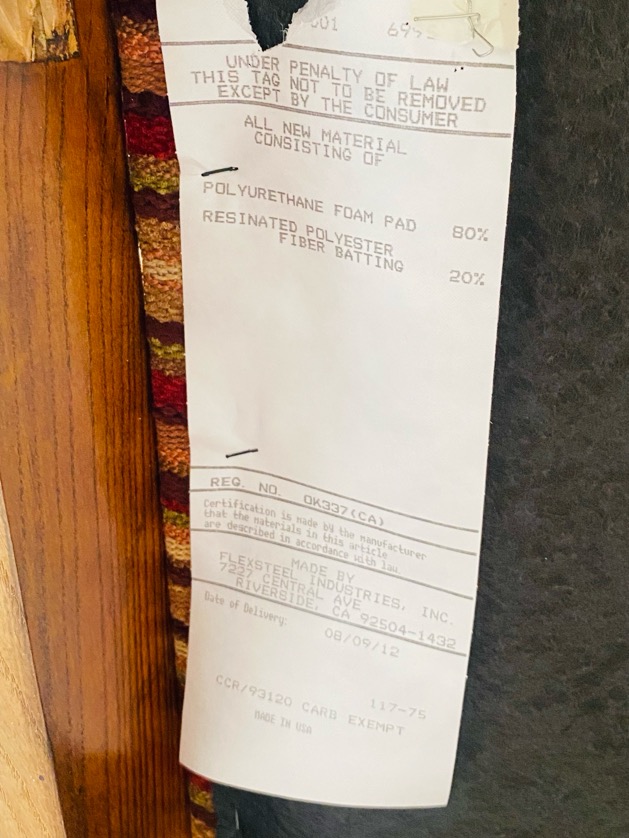 UNDER PENALTY OF LAW
THIS TAG NOT TO BE REMOVED
EXCEPT BY THE CONSUMER
ALL NEW MATERIAL
CONSISTING OF
POLYURETHANE FOAM PAD 80%
RESINATED POLYESTER
FIBER BATTING 20%
REG. NO. OK337(CA)
Certification is made by the manufacturer
that the materials in this article
are described in accordance with law.
MADE BY
FLEXSTEEL INDUSTRIES, INC.
7227 CENTRAL AVE
RIVERSIDE, CA 92504-1432
Date of Delivery:
08/09/12
117-75
CCR/93120 CARB EXEMPT
MADE IN USA